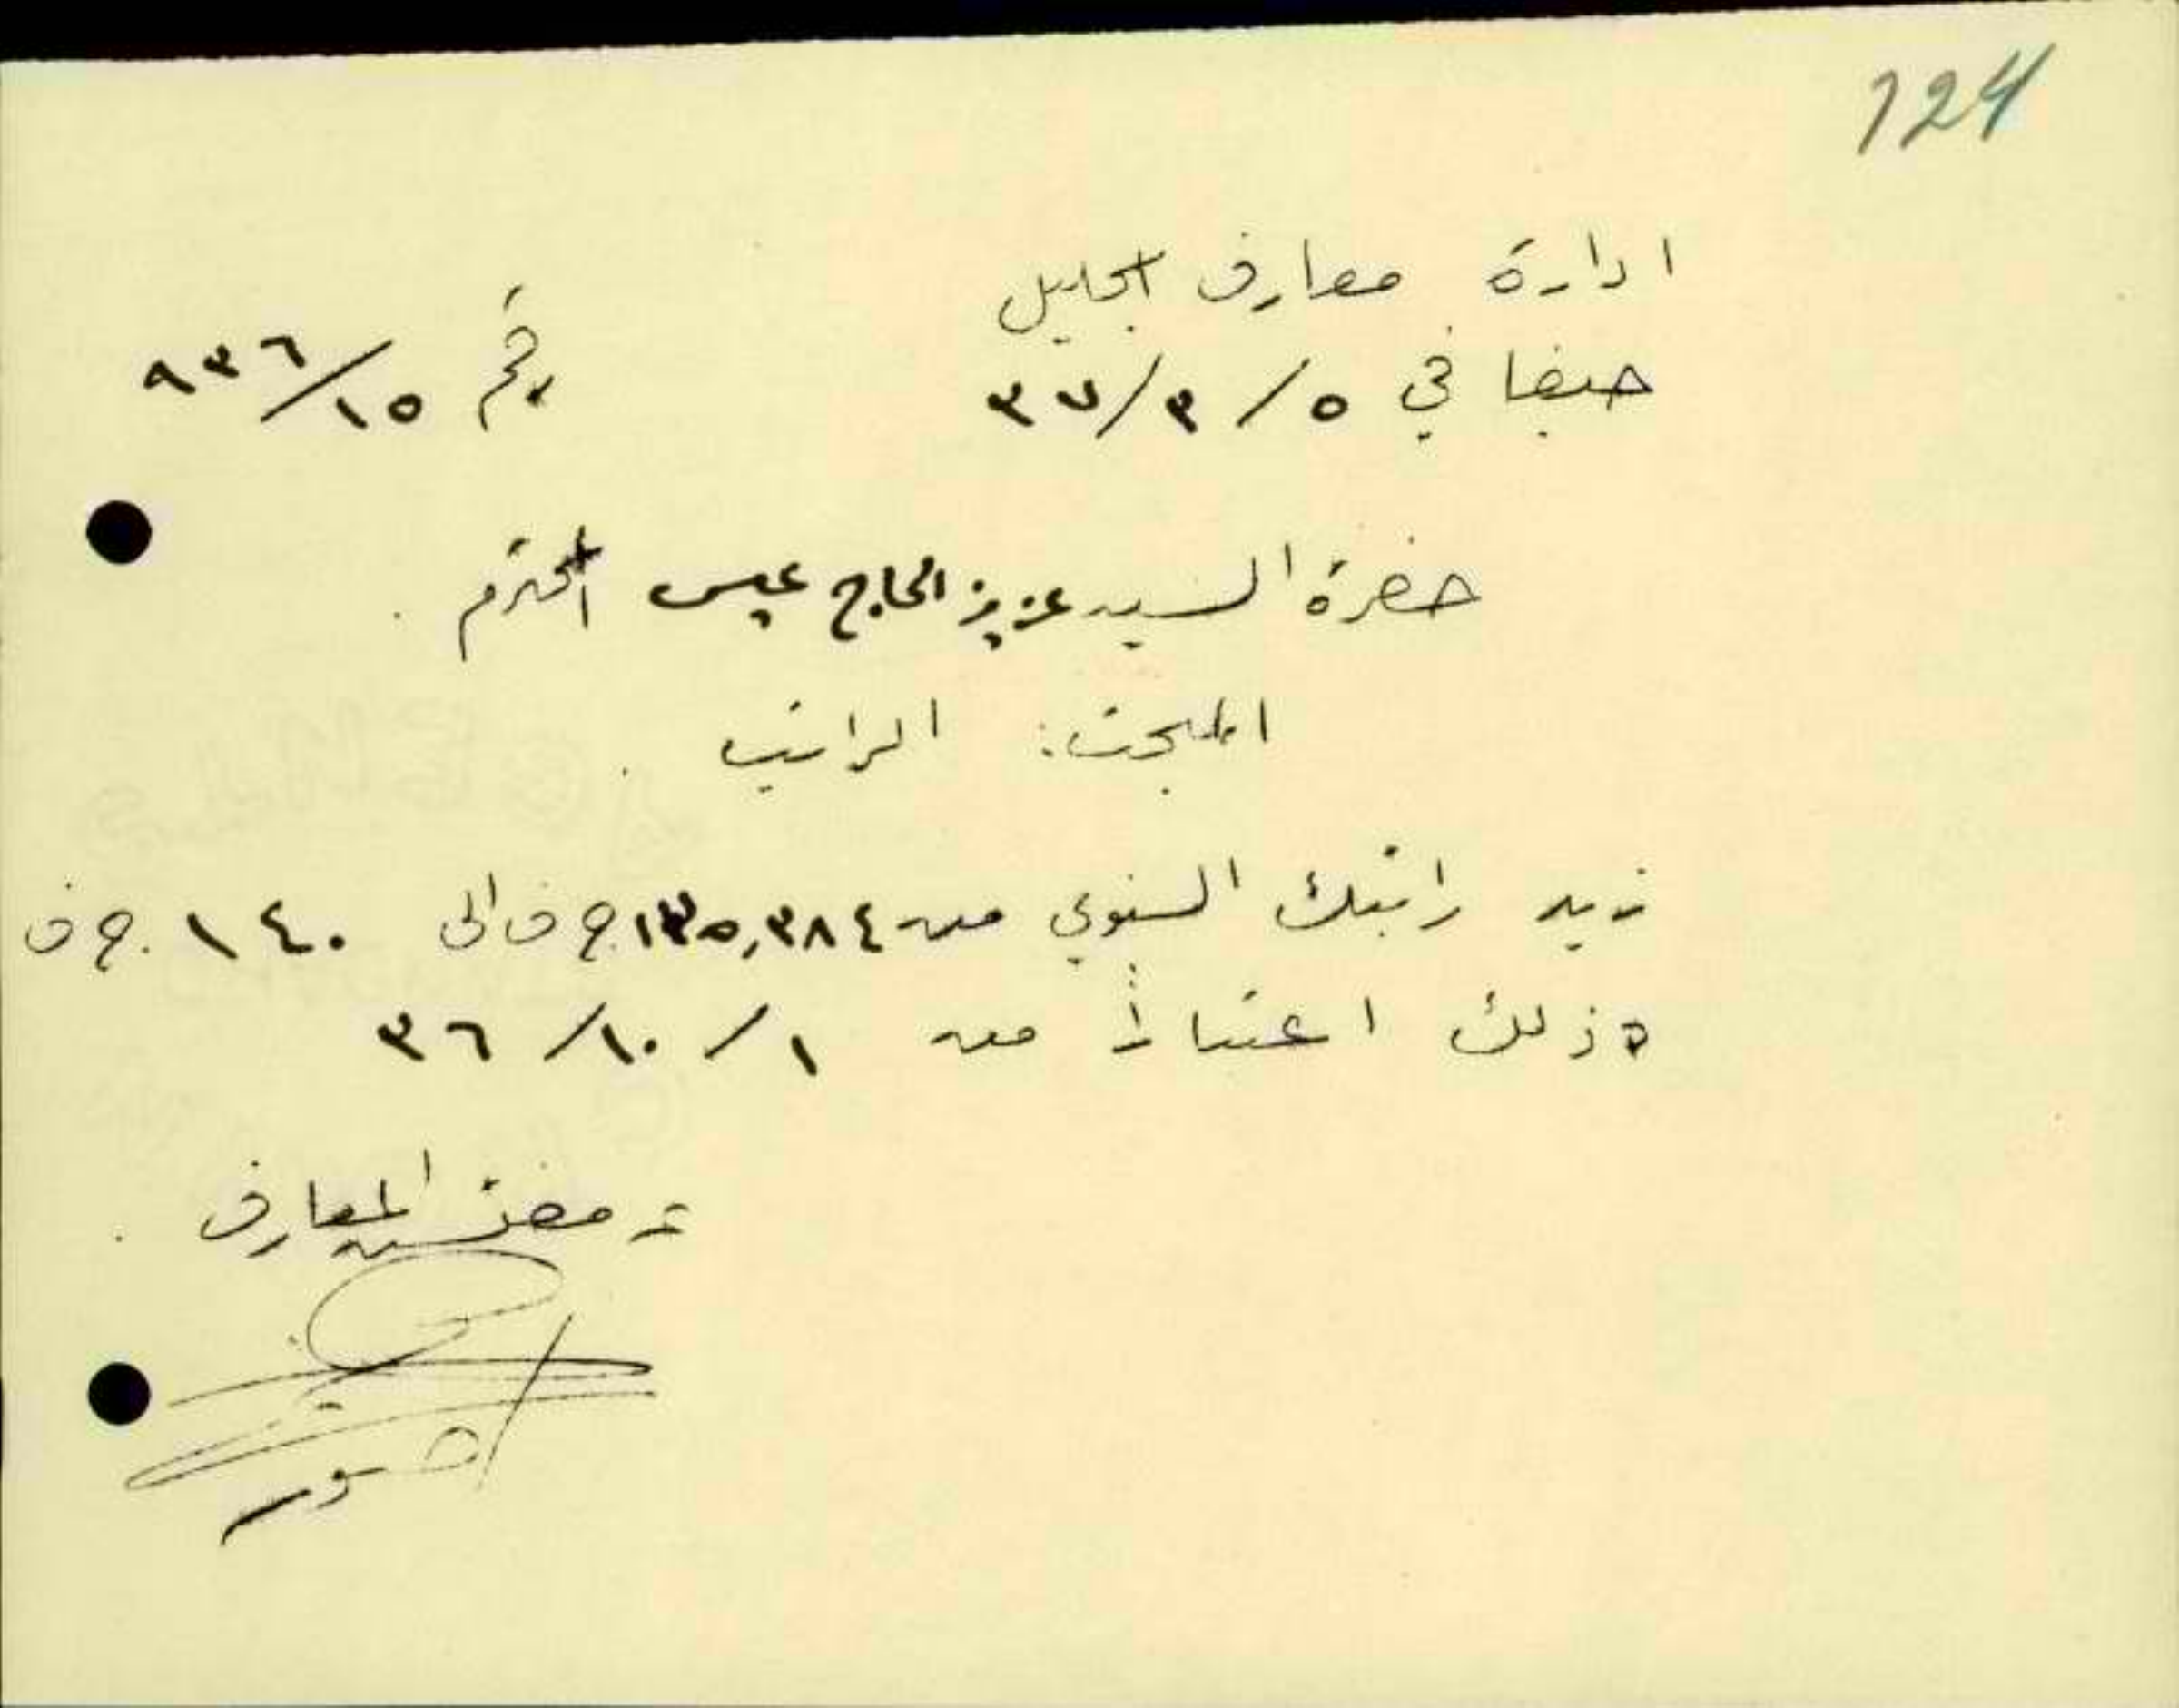 124
ادارة معارف الجليل
حيفا في ٥/٣/٣٧
رقم ١٥/٩٣٦
حضرة السيد عزيز الحاج عيسى المحترم.
المبحث: الراتب.
زيد راتبك السنوي من ١٣٥,٣٨٤ ج ف الى ١٤٠ ج. ف
وذلك اعتباراً من ١/١٠/٣٦
مفتش المعارف.